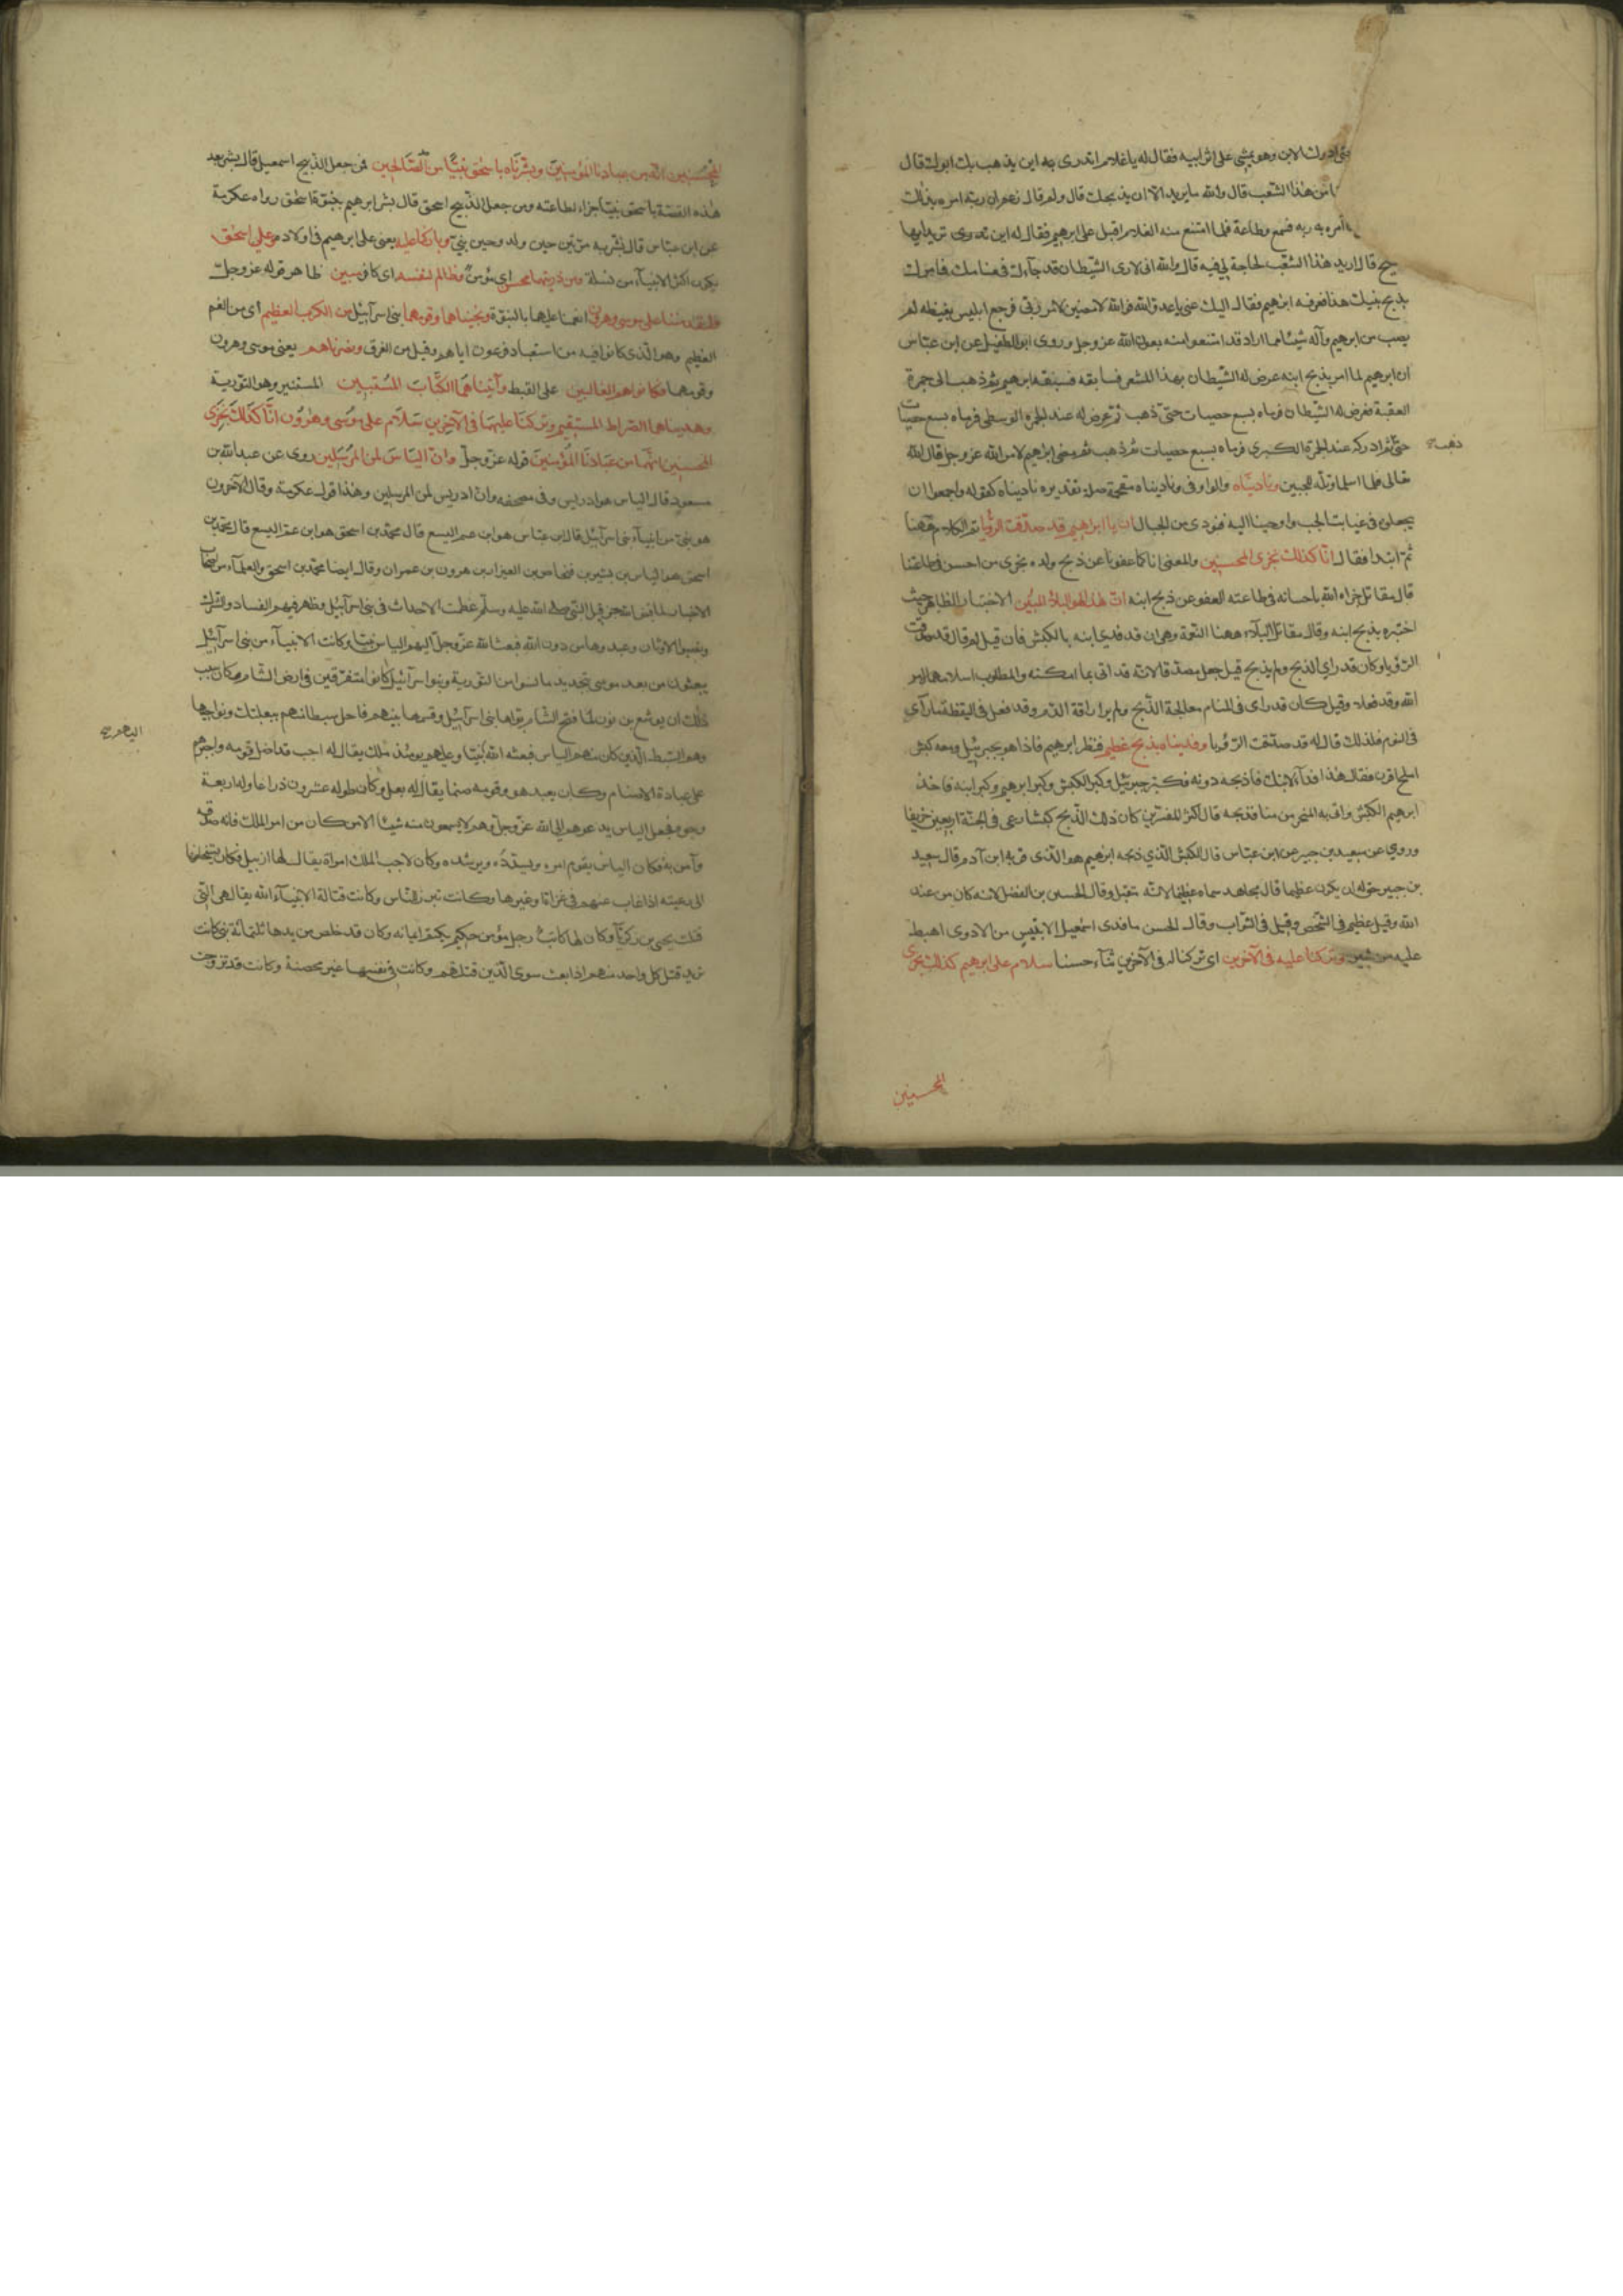 ادرك الابن وهو يمشي على اثر ابيه فقال له يا غلام اتدرى اين يذهب بك ابوك قال
من هذا الشعب قال والله ما يريد الا ان يذبحك قال ولم قال زعم ان ربه امره بذلك
امره به ربه فسمع وطاعة فلما امتنع منه الغلام اقبل على ابرهيم فقال له اين تريد ايها
قال اريد هذا الشعب لحاجة لي فيه قال والله انى لارى الشيطان قد جآءك فى منامك فامرك
بذبح بنيك هذا فعرفه ابرهيم فقال اليك عنى يا عدو الله فوالله لامضين لامر ربى فرجع ابليس بغيظه لم
يصب من ابرهيم وآله شيئا مما اراد قد امتنعوا منه بعون الله عز وجل وروى ابو الطفيل عن ابن عباس
ان ابرهيم لما امر بذبح ابنه عرض له الشيطان بهذا المشعر فسابقه فسبقه ابرهيم ثم ذهب الى جمرة
العقبة فعرض له الشيطان فرماه بسبع حصيات حتى ذهب ثم عرض له عند الجمرة الوسطى فرماه بسبع حصيات
حتى ثم ادركه عند الجمرة الكبرى فرماه بسبع حصيات ثم ذهب ثم مضى ابرهيم لامر الله عز وجل قال الله
ذهب صح
تعالى فلما اسلما وتله للجبين وناديناه والواو فى وناديناه مقحمة صلة تقديره ناديناه كقوله واجمعوا ان
يجعلوه فى غيابت الجب واوحينا اليه فنودى من الجبال ان يا ابراهيم قد صدقت الرؤيا تم الكلام ههنا
ثم ابتدا فقال انا كذلك نجزى المحسنين والمعنى انا كما عفونا عن ذبح ولده نجزى من احسن فى طاعتنا
قال مقاتل جزاه الله باحسانه فى طاعته العفو عن ذبح ابنه ان هذا لهو البلاء المبين الاختبار الظاهر حيث
اختبره بذبح ابنه وقال مقاتل البلآء ههنا النعمة وهى ان قد فدى ابنه بالكبش فان قيل لم قال قد صدقت
الرؤيا وكان قد راى الذبح ولم يذبح قيل جعل مصدقا لانه قد اتى بما امكنه والمطلوب اسلامهما لامر
الله وقد فعلا وقيل كان قد راى فى المنام معالجة الذبح ولم ير اراقة الدم وقد فعل فى اليقظة ما رآى
فى النوم فلذلك قال له قد صدقت الرؤيا وفديناه بذبح عظيم فنظر ابرهيم فاذا هو بجبرئيل ومعه كبش
املح اقرن فقال هذا فدآء لابنك فاذبحه دونه فكبر جبرئيل وكبر الكبش وكبر ابرهيم وكبر ابنه فاخذ
ابرهيم الكبش واتى به المنحر من منا فذبحه قال اكثر المفسرين كان ذلك الذبح كبشا رعى فى الجنة اربعين خريفا
وروي عن سعيد بن جبير عن ابن عباس قال الكبش الذي ذبحه ابرهيم هو الذى قربه ابن آدم قال سعيد
بن جبير حق له ان يكون عظيما قال مجاهد سماه عظيما لانه متقبل وقال الحسين بن الفضل لانه كان من عند
الله وقيل عظيم فى الشخص وقيل فى الثواب وقال الحسن ما فدى اسمعيل الا بتيس من الاروى اهبط
عليه من ثبير وتركنا عليه فى الآخرين اى تركنا له فى الآخرين ثنآء حسنا سلام على ابرهيم كذلك نجزى
المحسنين
المحسنين انه من عبادنا المؤمنين وبشرناه باسحق نبيا من الصالحين فمن جعل الذبيح اسمعيل قال بشر بعد
هذه القصة باسحق نبيا جزاء لطاعته ومن جعل الذبيح اسحق قال بشر ابرهيم بنبوة اسحق رواه عكرمة
عن ابن عباس قال بشر به مرتين حين ولد وحين نبئ وباركنا عليه يعنى على ابرهيم فى اولاده وعلى اسحق
يكون اكثر الانبيآء من نسله ومن ذريتهما محسن اى مؤمن وظالم لنفسه اى كافر مبين ظاهر قوله عز وجل
ولقد مننا على موسى وهرون انعمنا عليهما بالنبوة ونجيناهما وقومهما بنى اسرآئيل من الكرب العظيم اى من الغم
العظيم وهو الذى كانوا فيه من استعباد فرعون اياهم وقيل من الغرق ونصرناهم يعنى موسى وهرون
وقومهما فكانوا هم الغالبين على القبط وآتيناهما الكتاب المستبين المستنير وهو التورية
وهديناهما الصراط المستقيم وتركنا عليهما فى الآخرين سلام على موسى وهرون انا كذلك نجزى
المحسنين انهما من عبادنا المؤمنين قوله عز وجل وان الياس لمن المرسلين روى عن عبد الله بن
مسعود قال الياس هو ادريس وفى مصحفه وان ادريس لمن المرسلين وهذا قول عكرمة وقال الآخرون
هو نبى من انبيآء بنى اسرآئيل قال ابن عباس هو ابن عم اليسع قال محمد بن اسحق هو ابن عم اليسع قال محمد بن
اسحق هو الياس بن بشير بن فنحاص بن العيزار بن هرون بن عمران وقال ايضا محمد بن اسحق والعلمآء من اصحاب
الاخبار لما قبض الله حزقيل النبى صلى الله عليه وسلم عظمت الاحداث فى بنى اسرآئيل وظهر فيهم الفساد والشرك
ونصبوا الاوثان وعبدوها من دون الله فبعث الله عز وجل اليهم الياس نبيا وكانت الانبيآء من بنى اسرآئيل
يبعثون من بعد موسى بتجديد ما نسوا من التورية وبنو اسرآئيل كانوا متفرقين فى ارض الشام وكان سبب
ذلك ان يوشع بن نون لما فتح الشام بوأها بنى اسرآئيل وقسمها بينهم فاحل سبطا منهم ببعلبك ونواحيها
وهم السبط الذين كان منهم الياس فبعثه الله نبيا وعليهم يومئذ ملك يقال له اجب قد اضل قومه واجبرهم
اليهم صح
على عبادة الاصنام وكان يعبد هو وقومه صنما يقال له بعل وكان طوله عشرون ذراعا وله اربعة
وجوه فجعل الياس يدعوهم الى الله عز وجل وهم لا يسمعون منه شيئا الا من كان من امر الملك فانه صدقه
وآمن به فكان الياس يقوم امره ويسدده ويرشده وكان لاجب الملك امراة يقال لها ازبيل فكان يستخلفها
الى رعيته اذا غاب عنهم فى غزاة او غيرها وكانت تبرز للناس وكانت قتالة لانبيآء الله يقال هى التى
قتلت يحيى بن زكريآ وكان لها كاتب رجل مؤمن حكيم يكتم ايمانه وكان قد خلص من يدها ثلثمائة نبى كانت
تريد قتل كل واحد منهم اذا بعث سوى الذين قتلتهم وكانت فى نفسها غير محصنة وكانت قد تزوجت